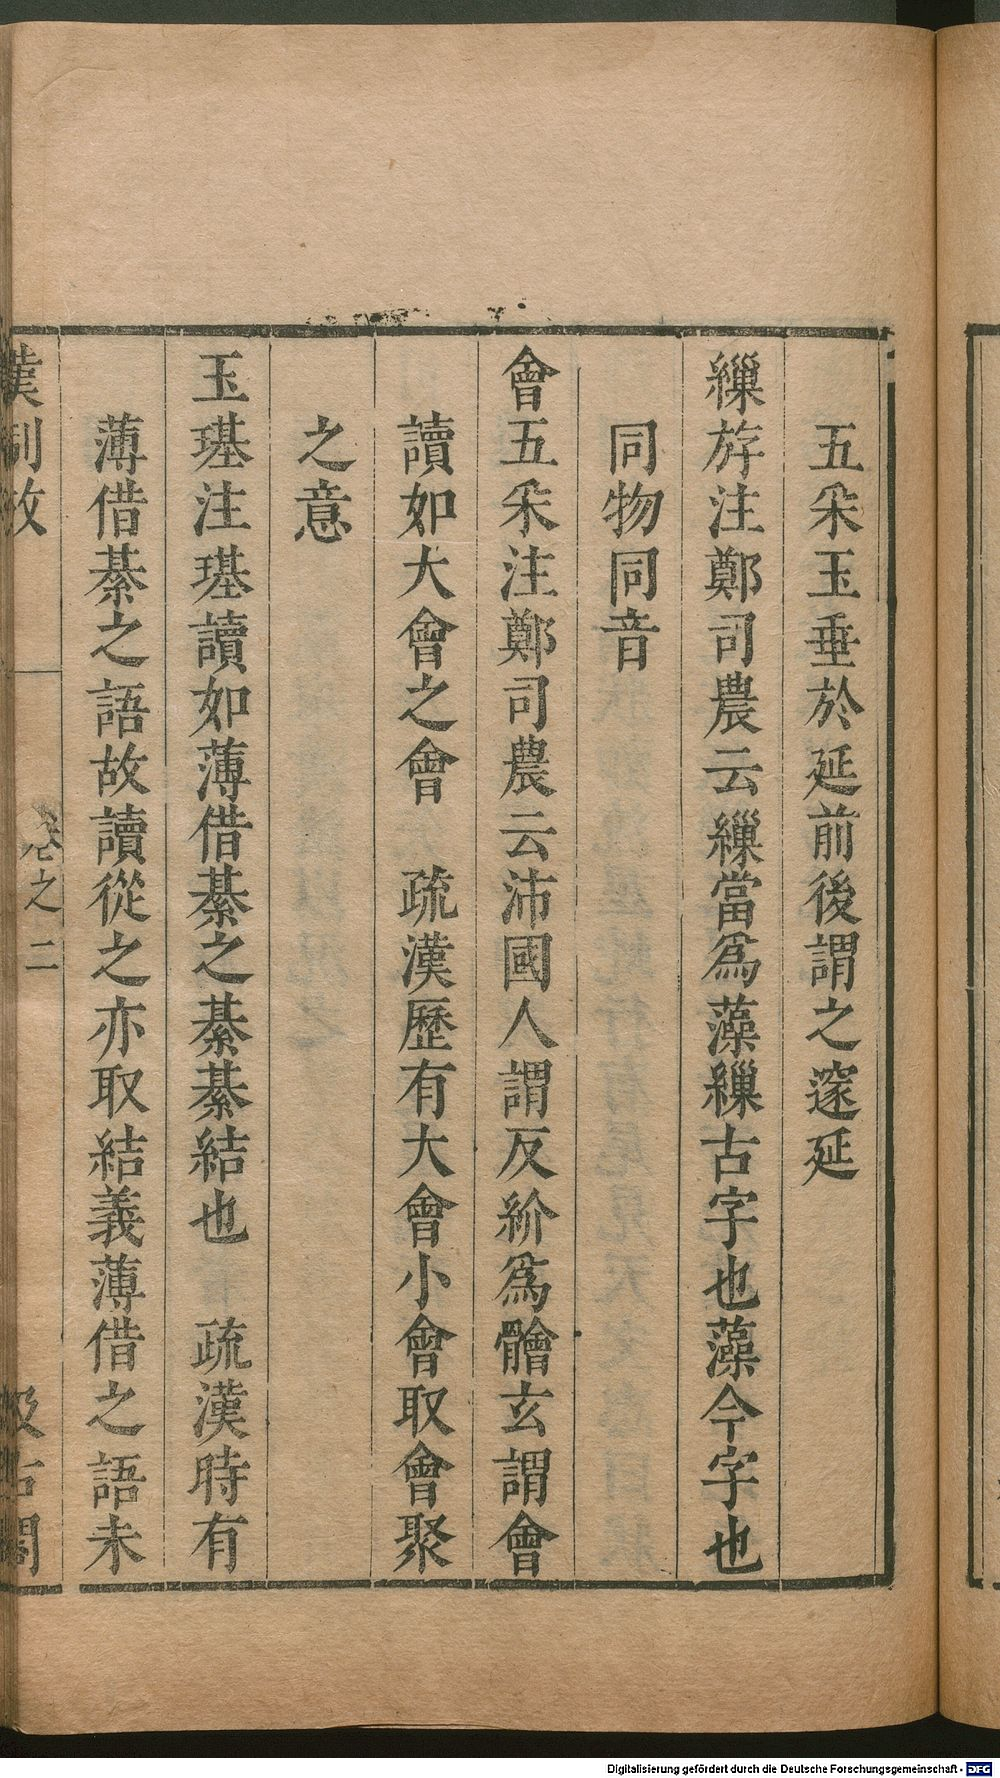 五采玉垂於延前後謂之邃延
繅斿注鄭司農云繅當爲藻繅古字也藻今字也
同物同音
會五采注鄭司農云沛國人謂反紒爲䯤玄謂會
讀如大會之會 疏漢歷有大會小會取會聚
之意
玉璂注璂讀如薄借綦之綦綦結也 疏漢時有
薄借綦之語故讀從之亦取結義薄借之語未
漢制攷 卷之二 汲古閣
Digitalisierung gefördert durch die Deutsche Forschungsgemeinschaft - DFG